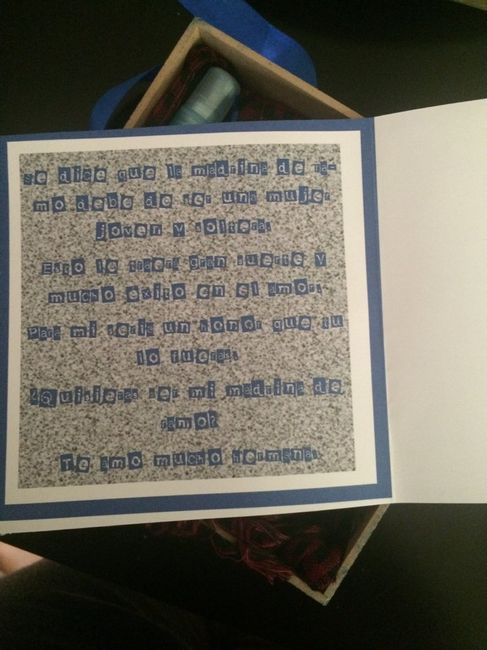 Se dice que la madrina de ra-
mo debe de ser una mujer
joven y soltera.
Esto le traera gran suerte y
mucho exito en el amor.
Para mi seria un honor que tu
lo fueras.
¿Quisieras ser mi madrina de
ramo?
Te amo mucho hermana.